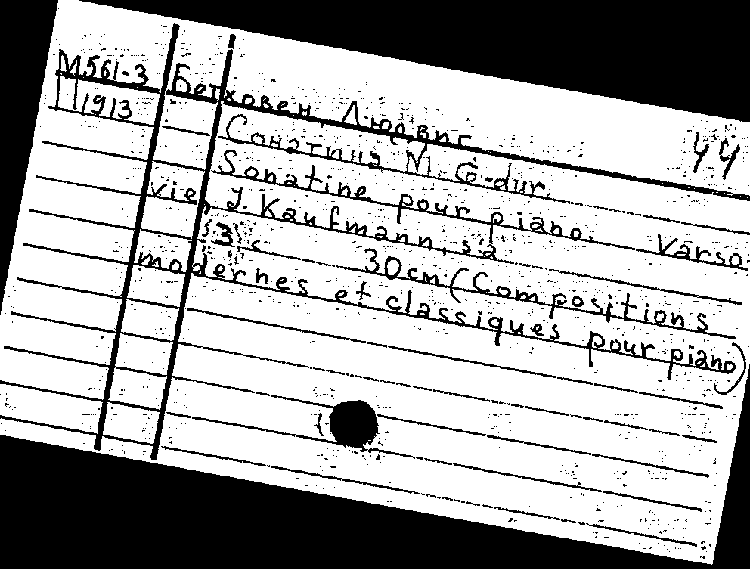 М561-3 Бетховен, Людвиг 44
11913 Сонатина N1. G-dur.
Sonatine pour piano. Varso-
vie, J. Kaufmann, s a
3 с 30cm (Compositions
modernes et classiques pour piano)